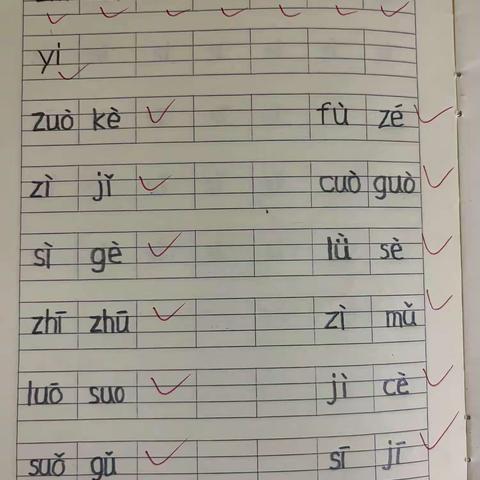 yi
zuò kè fù zé
zì jǐ cuò guò
sì gè lǜ sè
zhī zhū zì mǔ
luō suo jì cè
suǒ gǔ sī jī